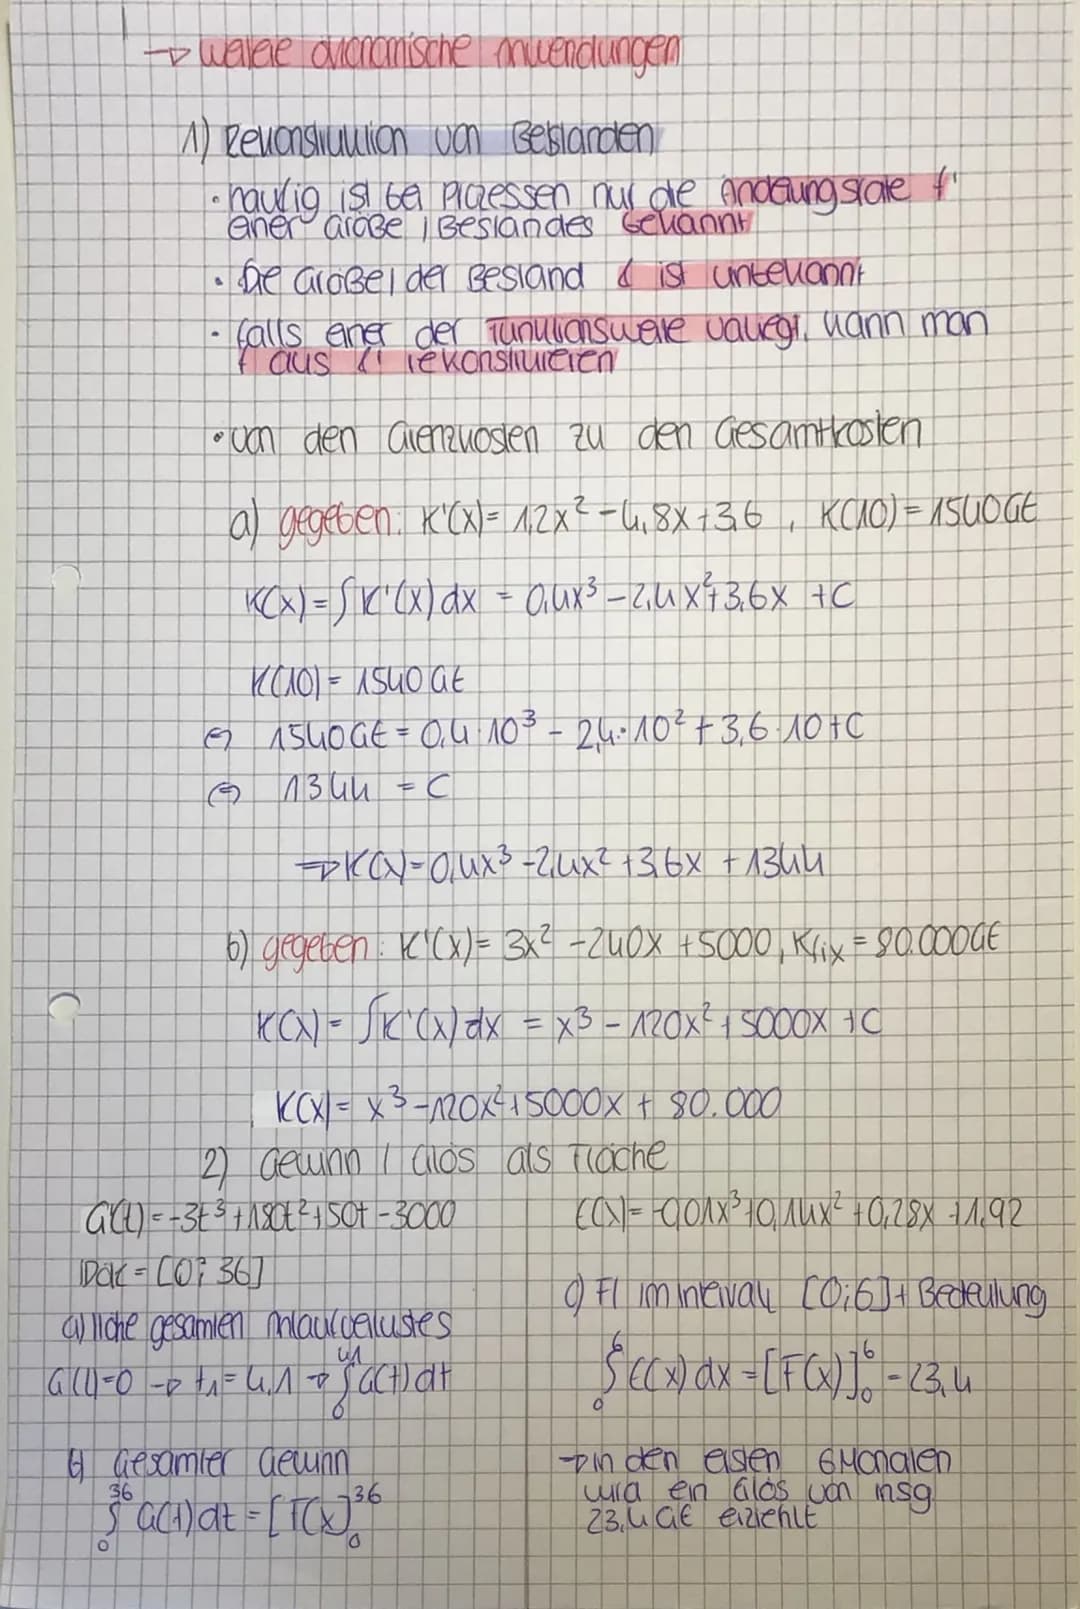 → weitere ökonomische Anwendungen
1) Rekonstruktion von Beständen
• häufig ist bei Prozessen nur die Änderungsrate f'
einer Größe / Bestandes bekannt
• Die Größe / der Bestand f ist unbekannt
• falls einer der Funktionswerte vorliegt, kann man
f aus f' rekonstruieren
• von den Grenzkosten zu den Gesamtkosten
a) gegeben: K'(x) = 1,2x² - 4,8x + 3,6 , K(10) = 1540 GE
K(x) = ∫K'(x) dx = 0,4x³ - 2,4x² + 3,6x + C
K(10) = 1540 GE
⇔ 1540 GE = 0,4·10³ - 2,4·10² + 3,6·10 + C
⇔ 1344 = C
⇒ K(x) = 0,4x³ - 2,4x² + 3,6x + 1344
b) gegeben: K'(x) = 3x² - 240x + 5000, Kfix = 80.000 GE
K(x) = ∫K'(x) dx = x³ - 120x² + 5000x + C
K(x) = x³ - 120x² + 5000x + 80.000
2) Gewinn / Erlös als Fläche
G(t) = -3t³ + 180t² + 50t - 3000
Dök = [0; 36]
a) Höhe gesamten Anlaufverlustes
G(t) = 0 → t₁ = 4,1 → ∫₀^4,1 G(t) dt
b) Gesamter Gewinn
∫₀³⁶ G(t) dt = [F(x)]₀³⁶
E(x) = -0,01x³ + 0,14x² + 0,28x + 1,92
c) Fl im Intervall [0;6] + Bedeutung
∫₀⁶ E(x) dx = [F(x)]₀⁶ = 23,4
→ in den ersten 6 Monaten
wird ein Erlös von insg.
23,4 GE erziehlt